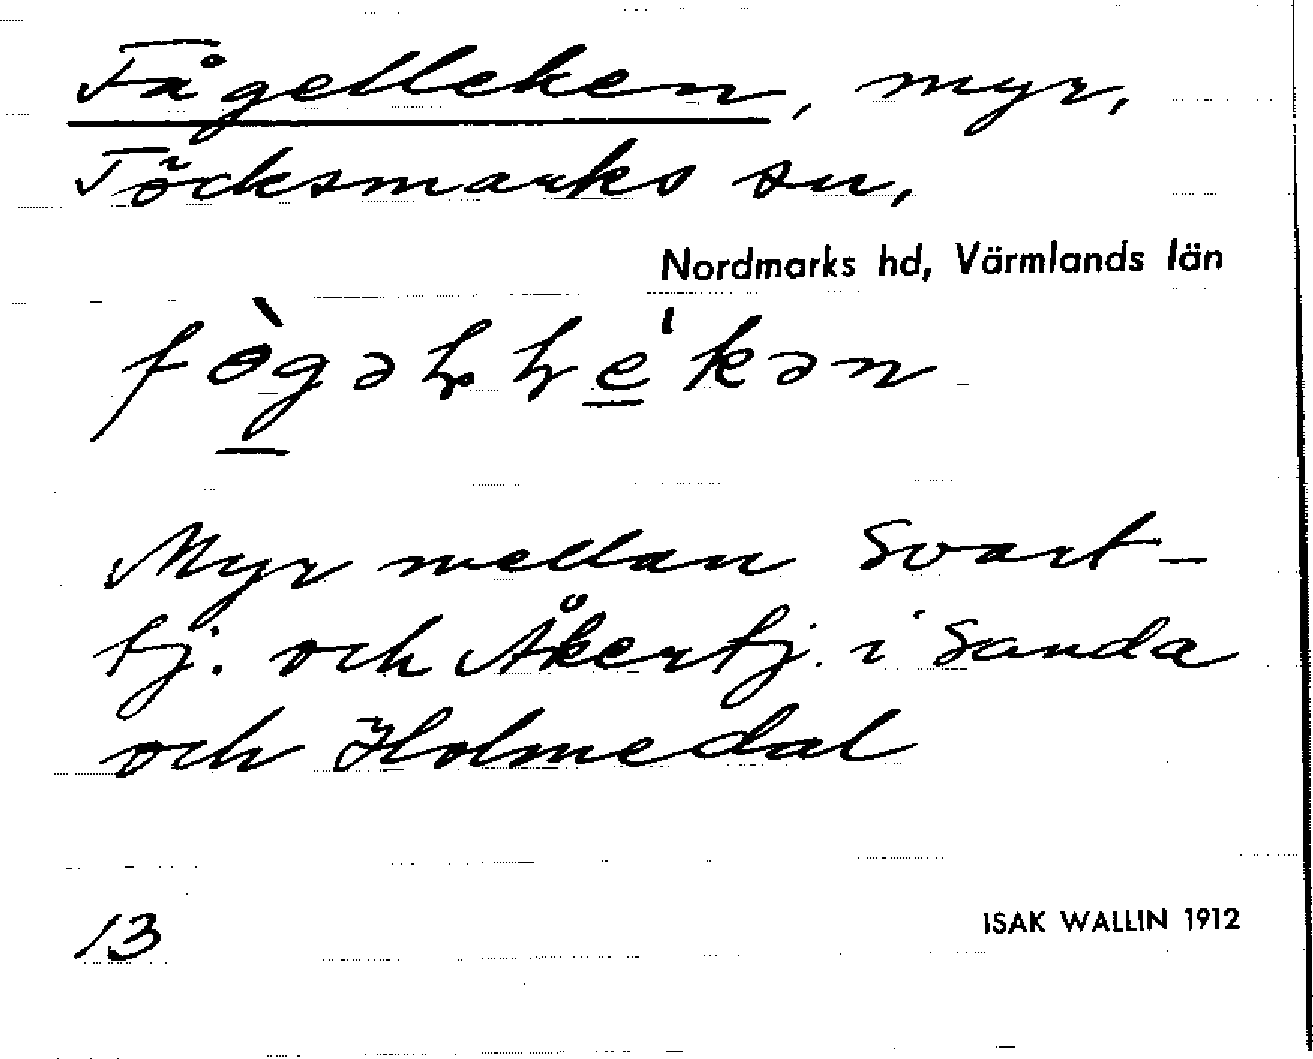 Fågelleken, myr,
Töcksmarks sn,
Nordmarks hd, Värmlands län
Myr mellan Svart-
tj. och Åkertj. i Sanda
och Holmedal
13
ISAK WALLIN 1912